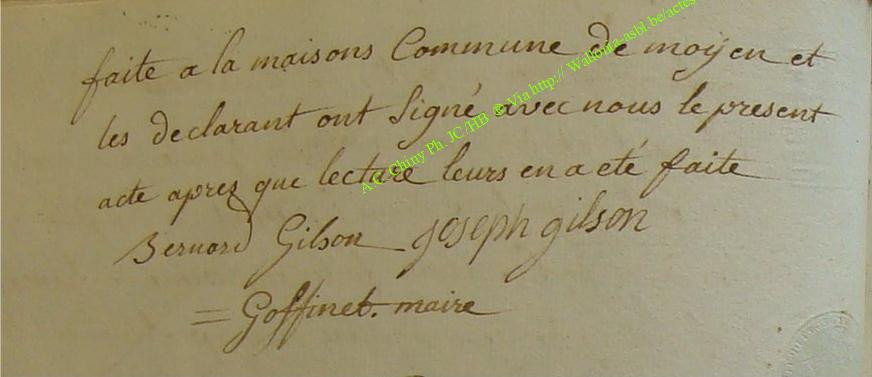 faite a la maisons Commune de moÿen et
les declarant ont Signé avec nous le present
acte apres que lecture leurs en a eté faite
Bernard Gilson joseph gilson
= Goffinet. maire
A G Chiny Ph. JC /HB ® Via http:// Wallonia-asbl.be/actes